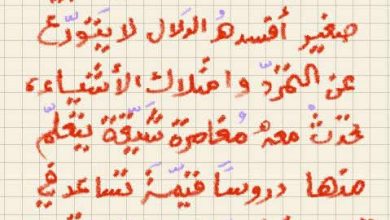 صغير أفسدهُ الدلال لا يتَورّع
عن التمرّد وامتلاك الأشياء،
تحدث معهُ مُغامرة شَيّقة يتعلّم
منها دروسًا قيّمَة تساعد في